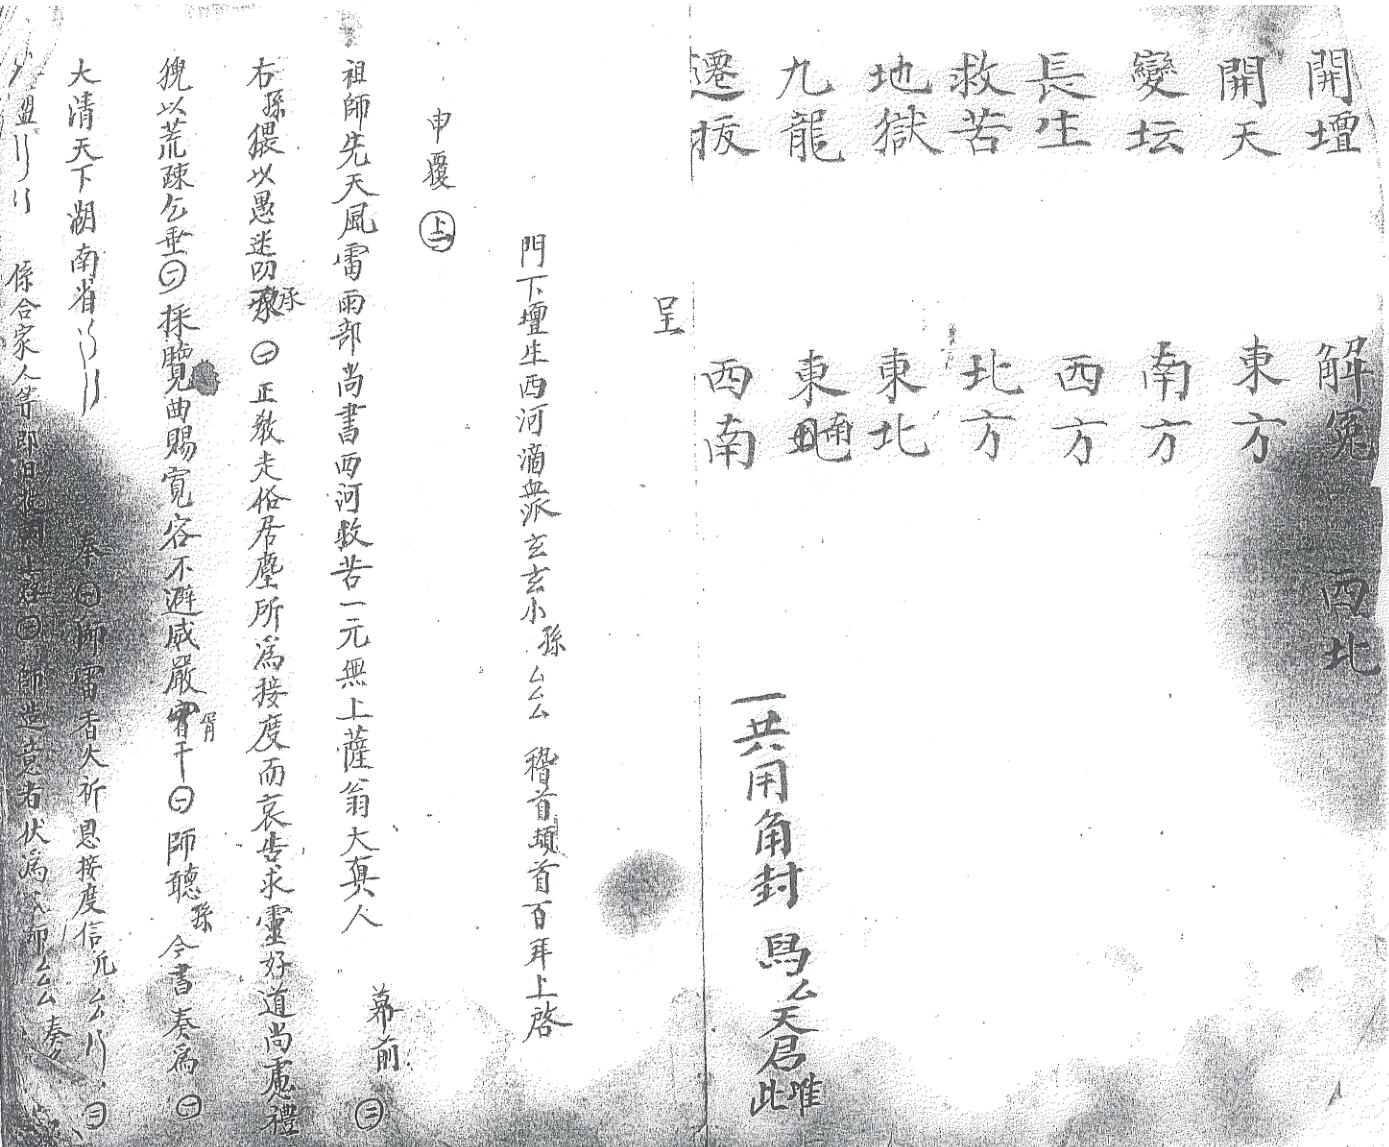 開壇 解冤 西北
開天 東方
變坛 南方
長生 西方
救苦 北方
地獄 東北
九龍 東南
遷拔 西南
一共用角封 厶天君 此唯
呈
門下壇生西河滴派玄玄小孫厶厶 稽首頓首百拜上啓
申覆 上
祖師先天風雷雨部尚書西河救苦一元無上薩翁大真人 幕前
右孫猥以愚迷叨承 正教走俗居塵所為接度而哀告求靈好道尚慮禮
猊以荒疎乞垂 採覽曲賜寬容不避威嚴冒干 師聽孫 今書奏為
大清天下湖南省 奉 師雷香火祈恩接度信 厶
盟 係合家人等即日 上 師造意者伏為 師厶 奏